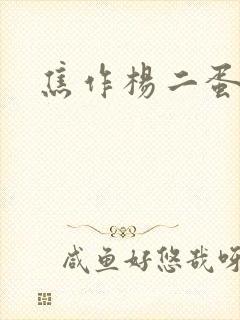 焦作杨二蛋
咸鱼好悠哉呀